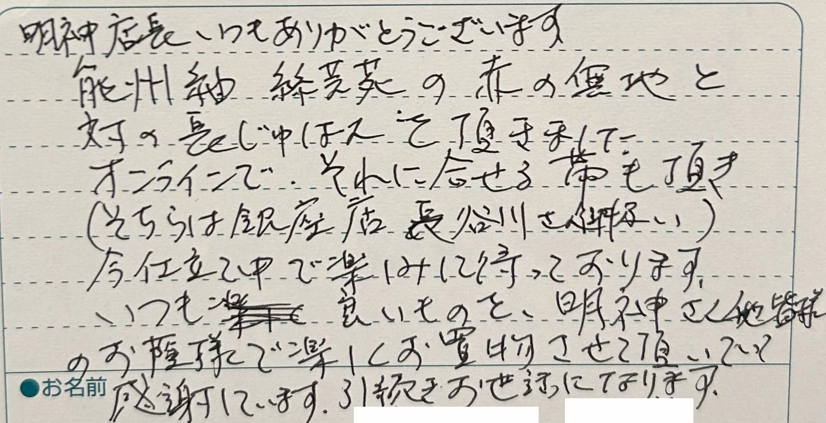 明神店長いつもありがとうございます
能州紬 絲芸苑の赤の無地と
対の長じゅばんを頂きました
オンラインで、それに合せる帯も頂き
(そちらは銀座店 長谷川さん御扱い)
今仕立て中で楽しみに待っております。
いつも 良いものを、明神さん他皆様
のお蔭様で楽しくお買物させて頂いていて
●お名前 感謝しています。引続きお世話になります。